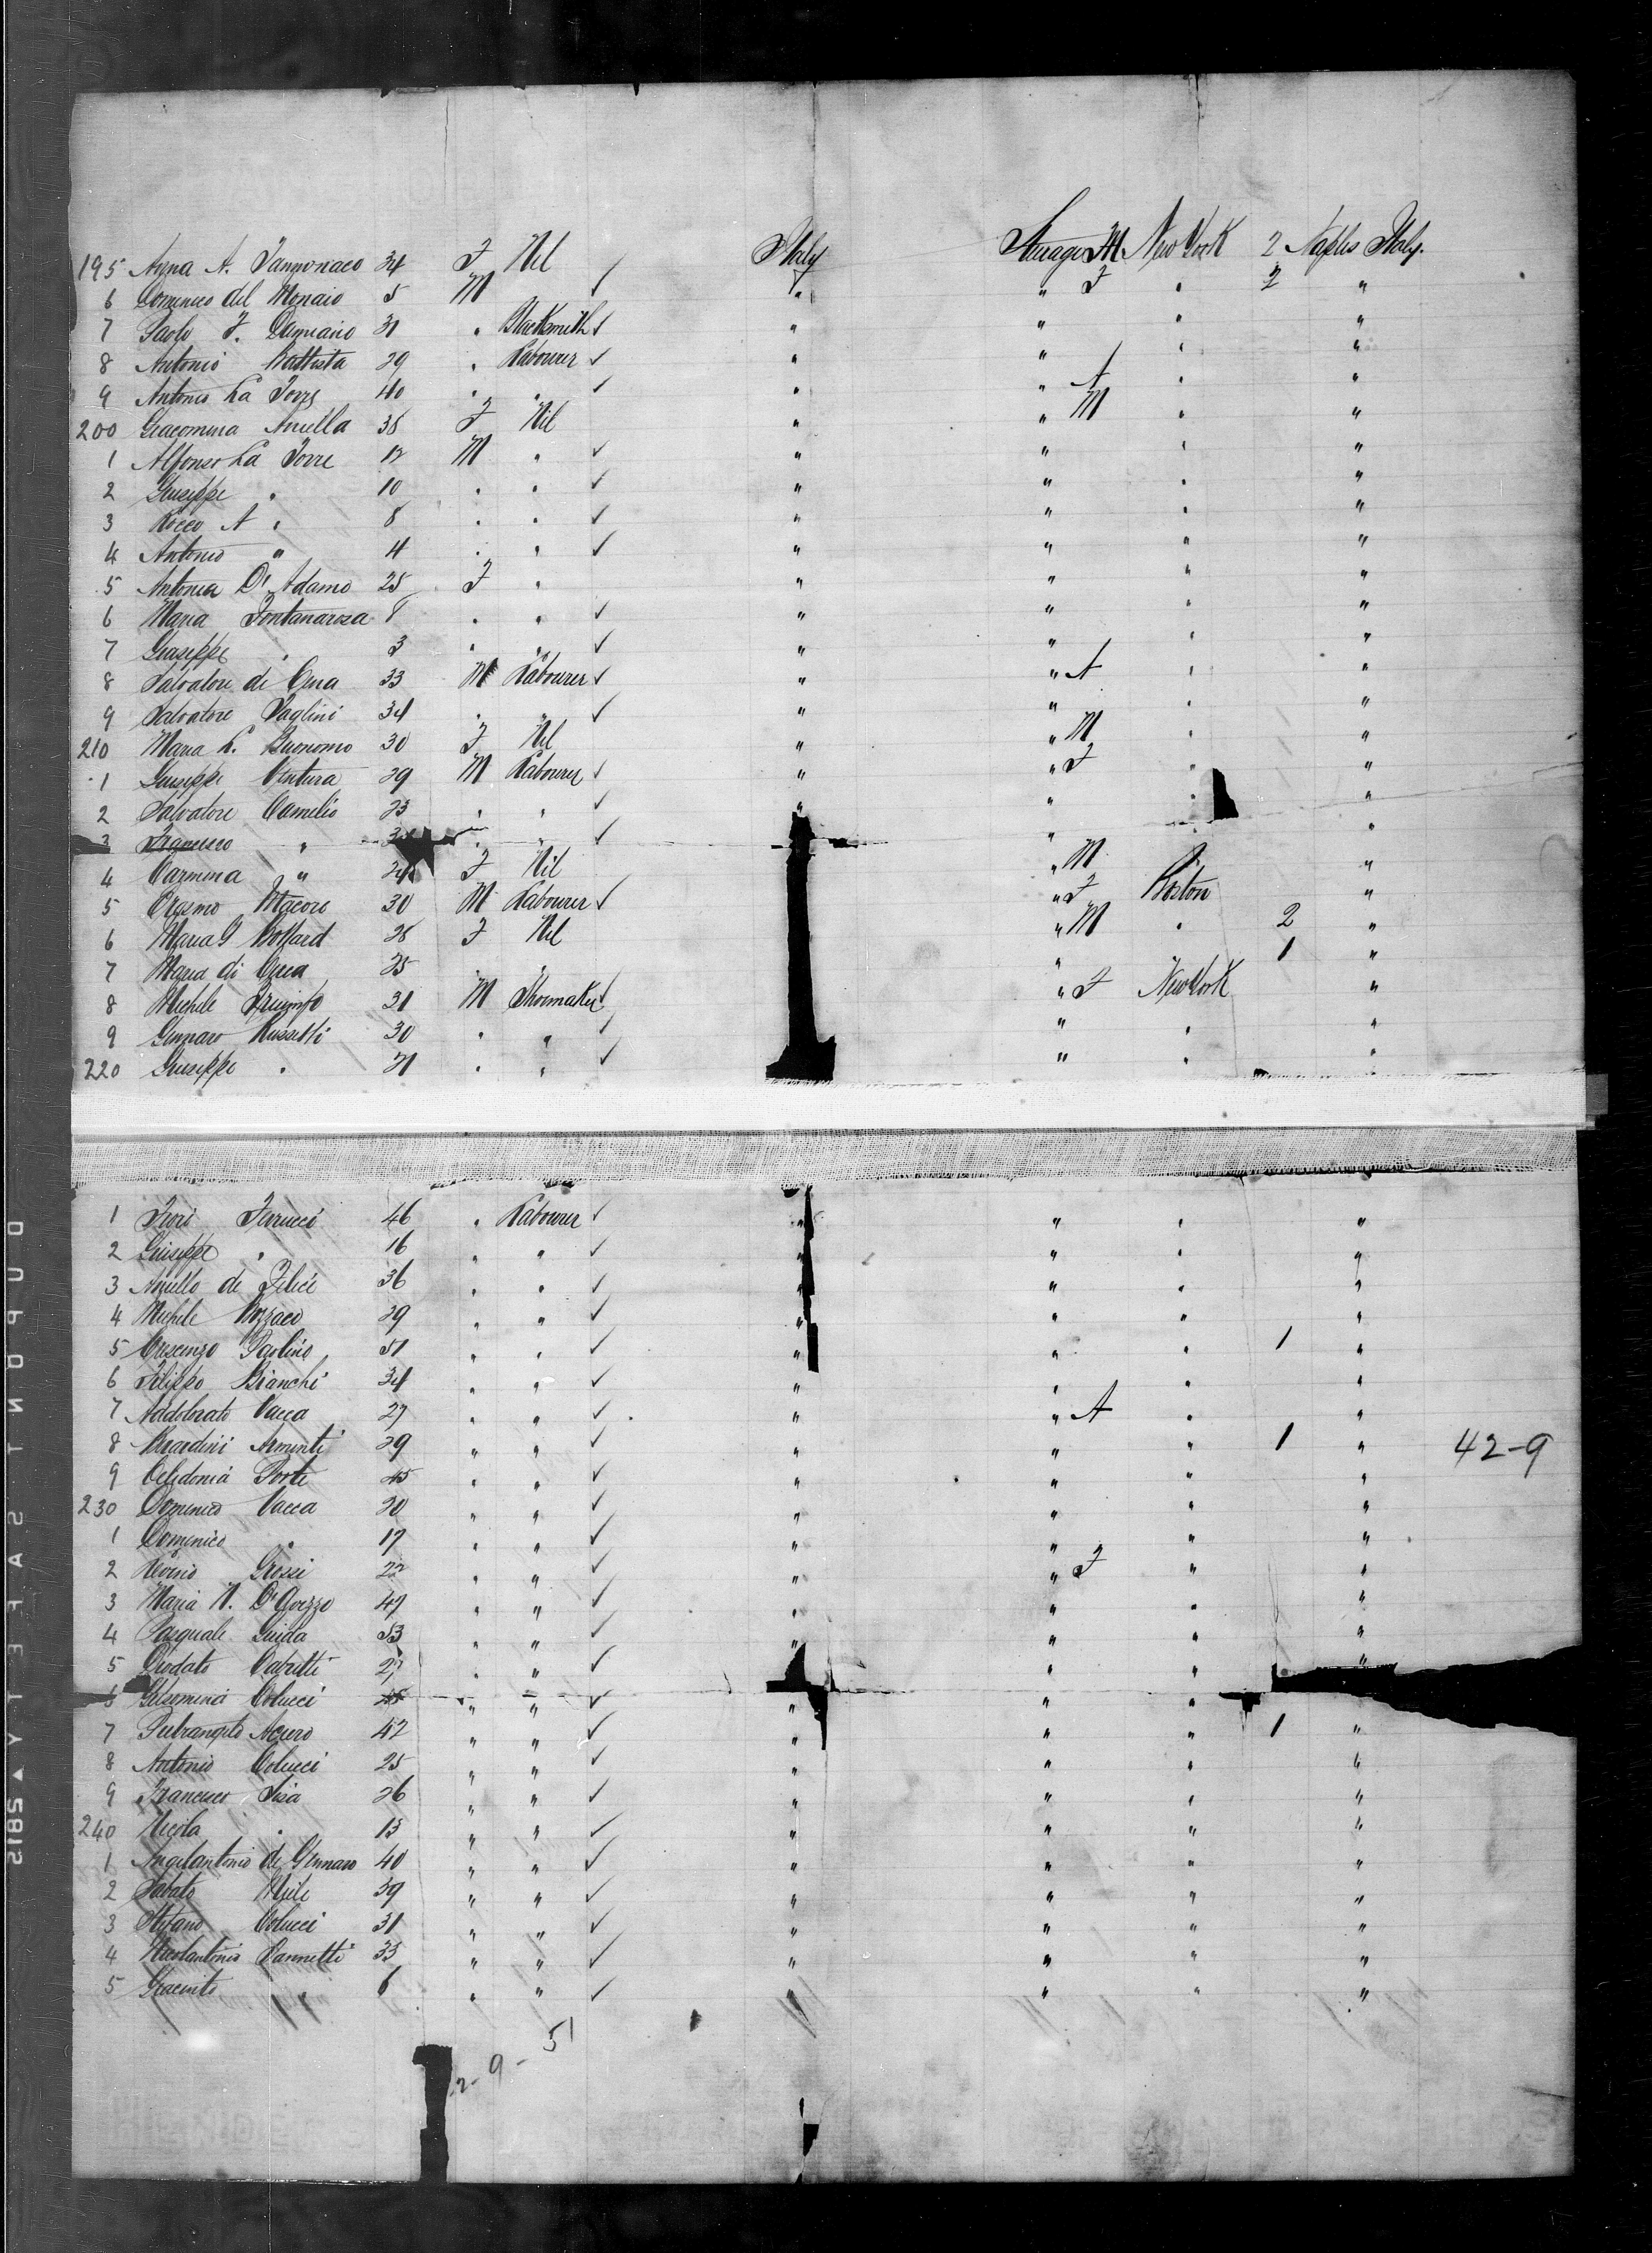 195 Anna A. Iannonaco 34 F Nil Italy Steerage M New York 2 Naples Italy.
6 Domenico del Monaio 5 M ✓ " " F " 2 "
7 Paolo F. Damiano 31 " Blacksmith ✓ " " " "
8 Antonio Battista 29 " Labourer ✓ " " " "
9 Antonio La Torre 40 " " ✓ " " A " "
200 Giacomina Aniella 38 F Nil " " M " "
1 Alfonso La Torre 12 M " ✓ " " " "
2 Giuseppe " 10 " " ✓ " " " "
3 Rocco A " 8 " " ✓ " " " "
4 Antonio " 4 " " ✓ " " " "
5 Antonia D'Adamo 25 F " " " " "
6 Maria Fontanarosa 8 " " ✓ " " " "
7 Giuseppe " 3 " " ✓ " " " "
8 Salvatore di Cura 33 M Labourer ✓ " " A " "
9 Salvatore Paglini 34 " " ✓ " " " "
210 Maria L. Buonomo 30 F Nil " " M " "
1 Giuseppe Ventura 29 M Labourer ✓ " " F " "
2 Salvatore Camelio 23 " " ✓ " " " "
3 Francesco " " " ✓ " "
4 Carmina " 24 F Nil " M " "
5 Erasmo Macoro 30 M Labourer ✓ " F Boston "
6 Maria G Bossard 28 F Nil " M " 2 "
7 Maria di Cura 25 " " " 1 "
8 Michele Triunfo 31 M Shoemaker ✓ " F New York "
9 Gennaro Russetti 30 " " ✓ " " "
220 Giuseppe " 21 " " ✓ " " "
1 Fiori Ferrucci 46 " Labourer ✓ " " " "
2 Giuseppe " 16 " " ✓ " " " "
3 Aniello de Felice 36 " " ✓ " " " "
4 Michele Bozzaco 29 " " ✓ " " " "
5 Crescenzo Paolino 51 " " ✓ " " " 1 "
6 Filippo Bianchi 34 " " ✓ " " " "
7 Addolorato Vacca 27 " " ✓ " " A " "
8 Berardini Arminti 29 " " ✓ " " " 1 " 42-9
9 Celidonia Porte 45 " " ✓ " " " "
230 Domenico Vacca 20 " " ✓ " " " "
1 Domenico " 17 " " ✓ " " " "
2 Grossi 22 " " ✓ " " F " "
3 Maria N. 47 " " ✓ " " " "
4 Pasquale Guida 53 " " ✓ " " " "
5 Diodato Cabritti 27 " " ✓ " " "
6 Gelsomina Colucci 45 " " ✓ " " " "
7 Pietrangelo Acuro 42 " " ✓ " " " 1 "
8 Antonio Colucci 25 " " ✓ " " " "
9 Francesco Sisa 26 " " ✓ " " " "
240 Nicola " 15 " " ✓ " " " "
1 Angelantonio de Gennaro 40 " " ✓ " " " "
2 Sabato Miele 39 " " ✓ " " " "
3 Stefano Colucci 31 " " ✓ " " " "
4 Nicolantonio Iannetti 35 " " ✓ " " " "
5 Giacinto " 6 " " ✓ " " " "
2-9-51